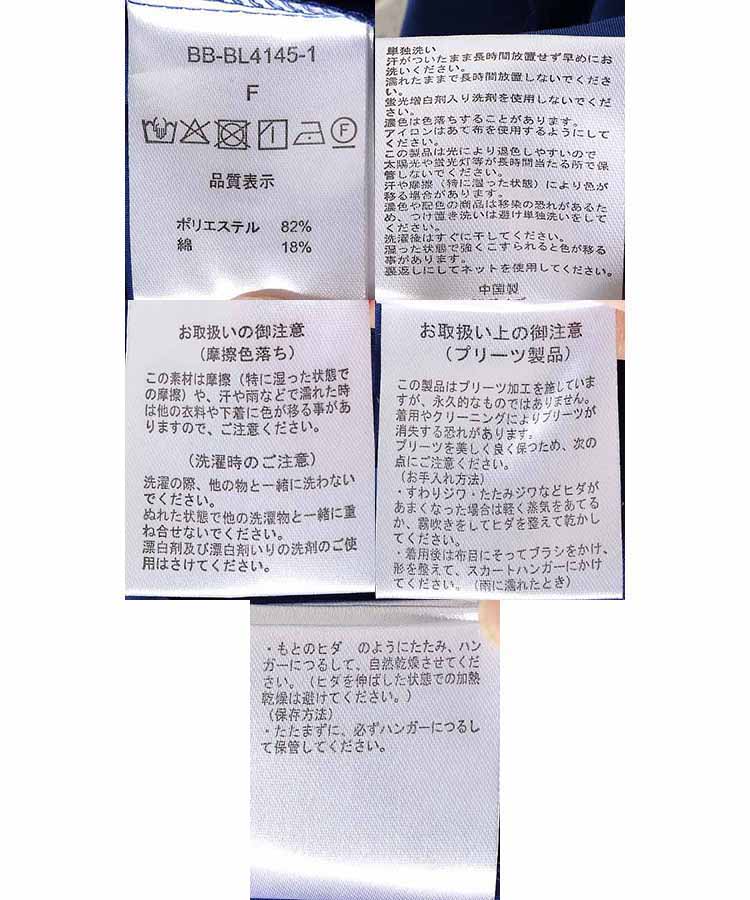 BB-BL4145-1
F
F
品質表示
ポリエステル 82%
綿 18%
単独洗い
汗がついたまま長時間放置せず早めにお
洗いください。
濡れたままで長時間放置しないでくださ
い。
蛍光増白剤入り洗剤を使用しないでくだ
さい。
濃色は色落ちすることがあります。
アイロンはあて布を使用するようにして
ください。
この製品は光により退色しやすいので
太陽光や蛍光灯等が長時間当たる所で保
管しないでください。
汗や摩擦（特に湿った状態）により色が
移る場合があります。
濃色や配色の商品は移染の恐れがあるた
め、つけ置き洗いは避け単独洗いをして
ください。
洗濯後はすぐに干してください。
湿った状態で強くこすられると色が移る
事があります。
裏返しにしてネットを使用してください。
中国製
お取扱いの御注意
（摩擦色落ち）
この素材は摩擦（特に湿った状態で
の摩擦）や、汗や雨などで濡れた時
は他の衣料や下着に色が移る事があ
りますので、ご注意ください。
（洗濯時のご注意）
洗濯の際、他の物と一緒に洗わない
でください。
ぬれた状態で他の洗濯物と一緒に重
ね合せないでください。
漂白剤及び漂白剤いりの洗剤のご使
用はさけてください。
お取扱い上の御注意
（プリーツ製品）
この製品はプリーツ加工を施していま
すが、永久的なものではありません。
着用やクリーニングによりプリーツが
消失する恐れがあります。
プリーツを美しく良く保つため、次の
点にご注意ください。
（お手入れ方法）
・すわりジワ・たたみジワなどヒダが
あまくなった場合は軽く蒸気をあてる
か、霧吹きをしてヒダを整えて乾かし
てください。
・着用後は布目にそってブラシをかけ、
形を整えて、スカートハンガーにかけ
てください。（雨に濡れたとき）
・もとのヒダ のようにたたみ、ハン
ガーにつるして、自然乾燥させてくだ
さい。（ヒダを伸ばした状態での加熱
乾燥は避けてください。）
（保存方法）
・たたまずに、必ずハンガーにつるし
て保管してください。